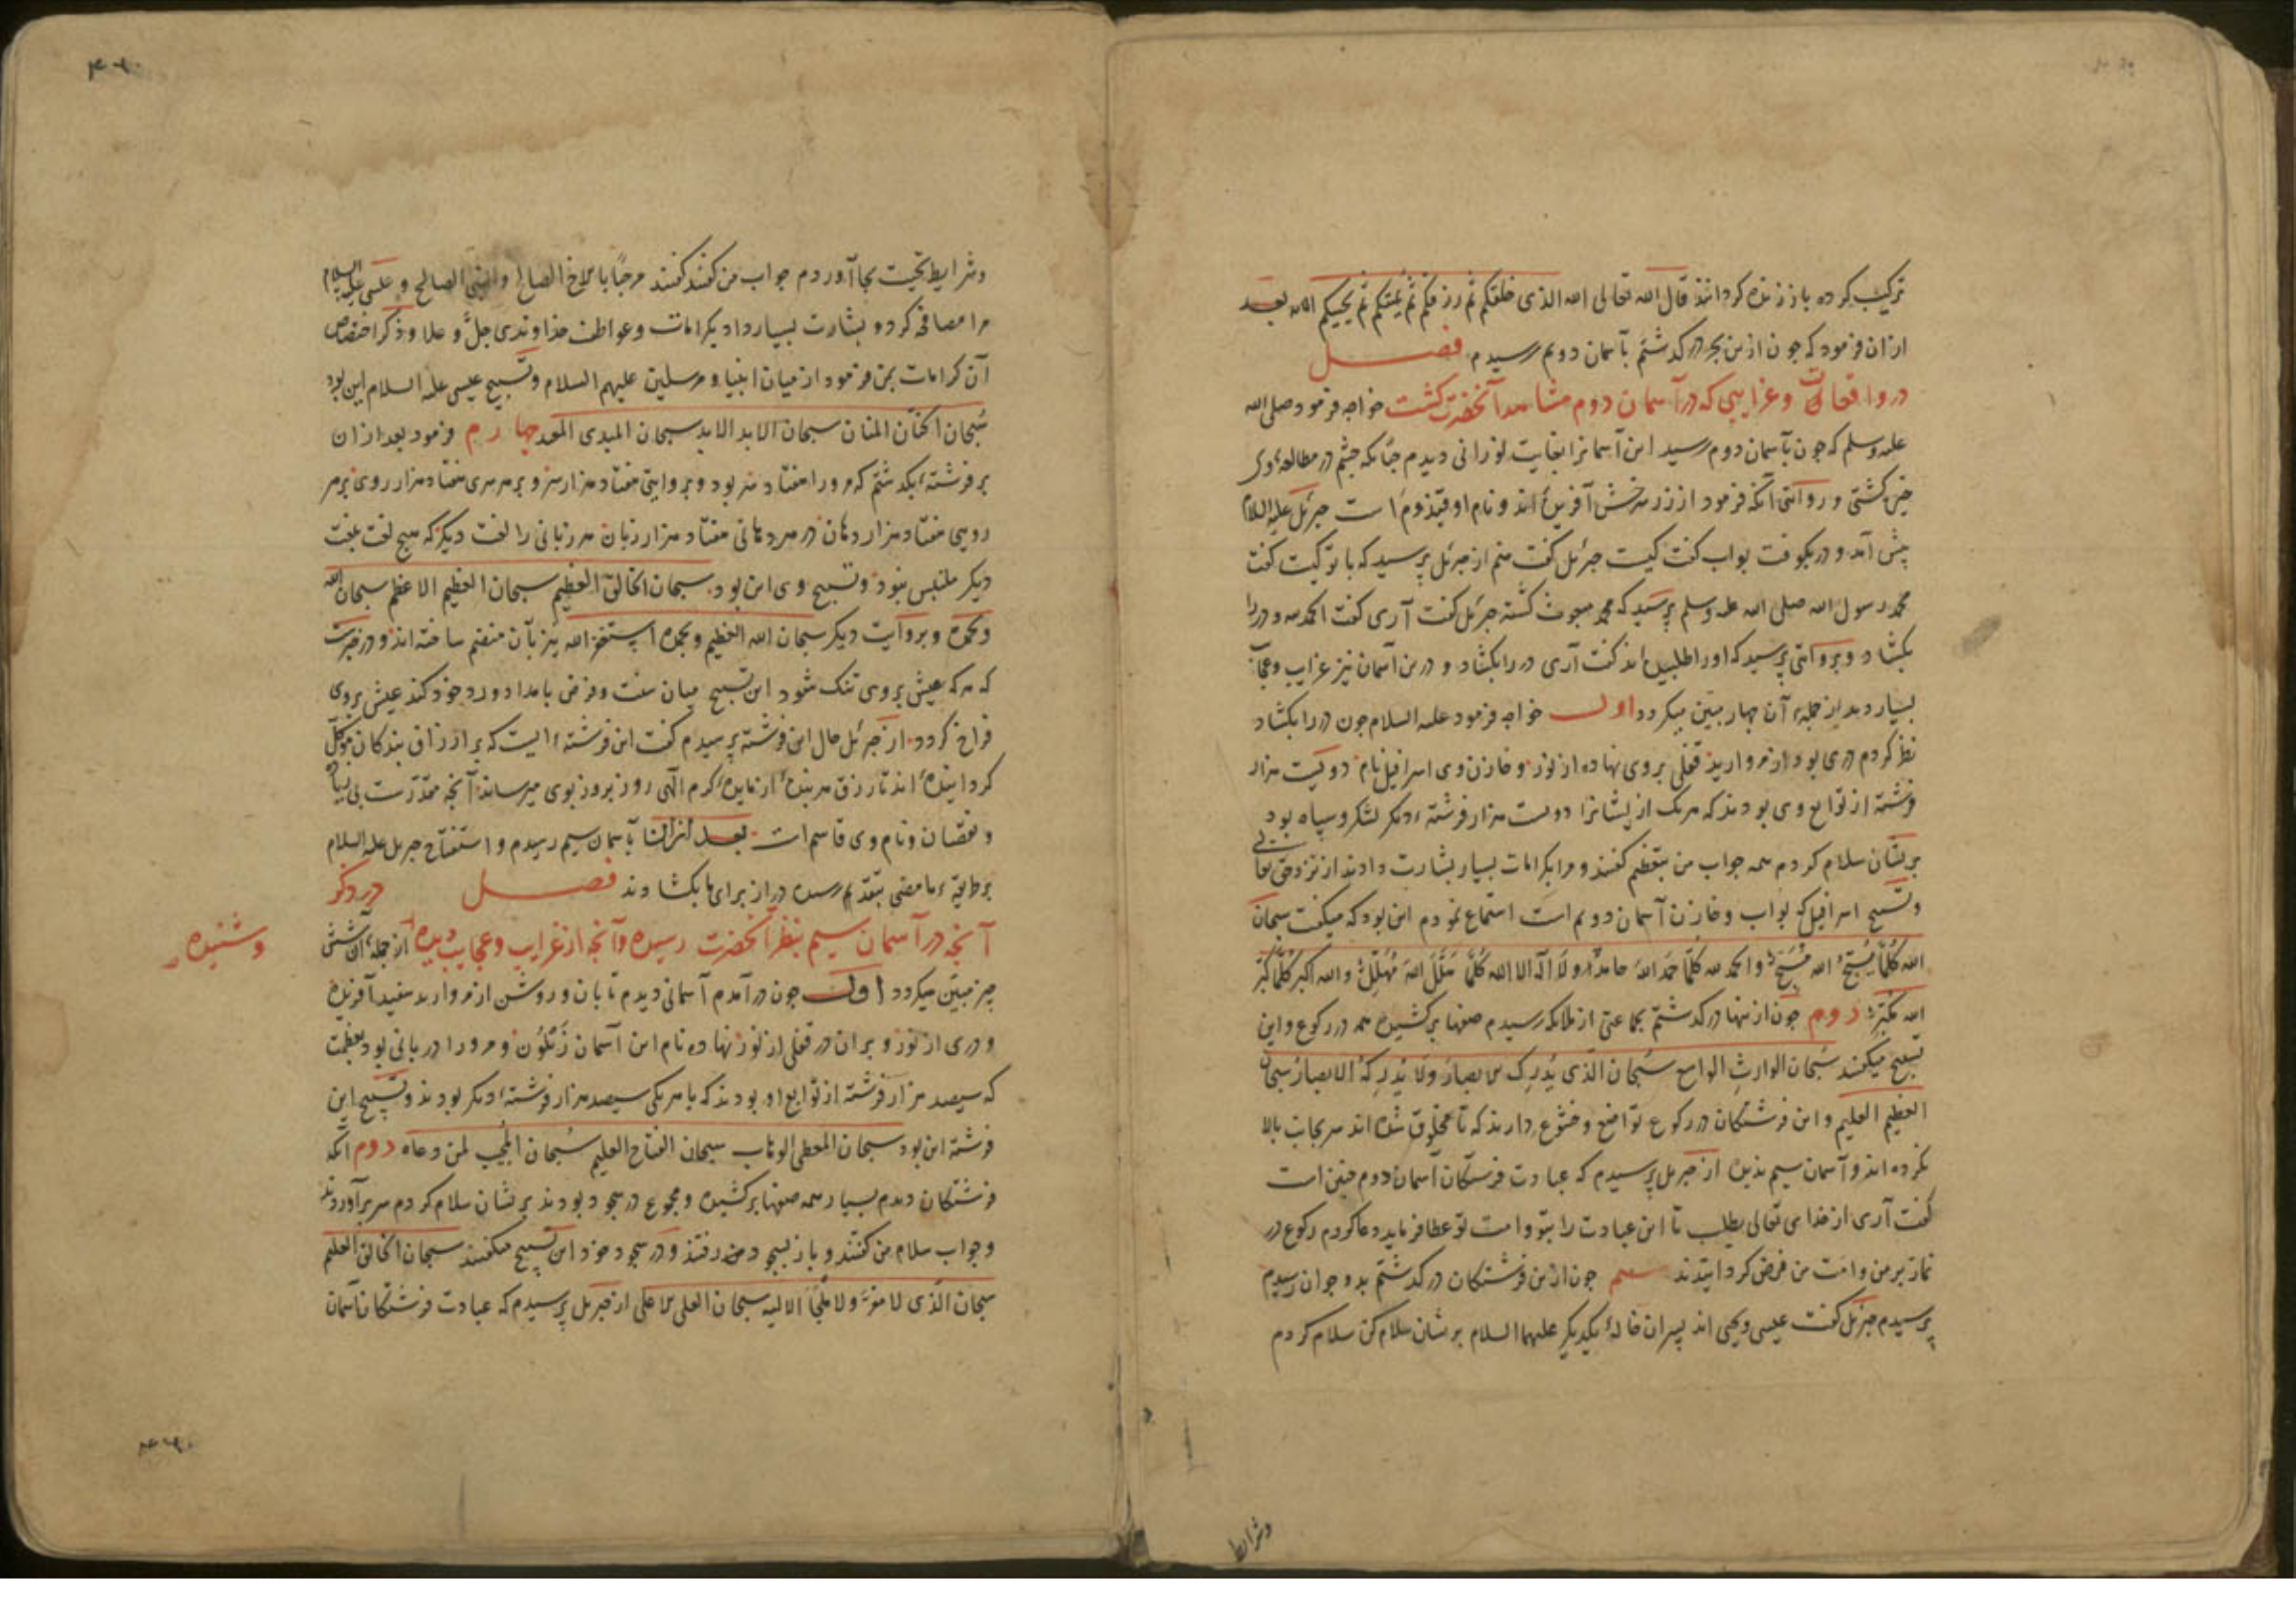 ترکیب کرده باز زنده کردانند قال الله تعالی الله الذی خلقکم ثم رزقکم ثم یمیتکم ثم یحییکم الایه بعد
ازان فرمود که چون ازین بحر در کذشتم بآسمان دویم رسیدم فصل
در واقعات و غرایبی که در آسمان دوم مشاهد آنحضرت کشت خواجه فرمود صلی الله
علیه وسلم که چون بآسمان دوم رسید این آسمانرا بغایت نورانی دیدم چنانکه چشم در مطالعهٔ وی
خیره کشتی و روایتی آنکه فرمود از زر سرخش آفریده اند و نام او قیذوم است جبرئیل علیه السلام
پیش آمد و در بکوفت بواب کفت کیست جبرئل کفت منم از جبرئل پرسید که با تو کیست کفت
محمد رسول الله صلی الله علیه وسلم پرسید که محمد مبعوث کشته جبرئل کفت آری کفت الحمد لله و در را
بکشاد و بروایتی پرسید که او را طلبیده اند کفت آری در را بکشاد و درین آسمان نیز غرایب و عجایب
بسیار دید از جملهٔ آن چهار مبین میکردد اول خواجه فرمود علیه السلام چون در را بکشاد
نظر کردم دری بود از مروارید قفلی بر وی نهاده از نور و خازن وی اسرافیل نام دویست هزار
فرشته از توابع وی بودند که هر یک از یشانرا دویست هزار فرشتهٔ دیکر لشکر و سپاه بود
بریشان سلام کردم همه جواب من بتعظیم کفتند و مرا بکرامات بسیار بشارت دادند از نزد حق تعالی
و تسبیح اسرافیل که بواب و خازن آسمان دویم است استماع نمودم این بود که میکفت سبحان
الله کلما یسبح الله مسبح والحمد لله کلما حمد الله حامد ولا اله الا الله کلما هلل الله مهلل والله اکبر کلما کبر
الله مکبر دوم چون ازینها در کذشتم بجماعتی از ملایکه رسیدم صفها برکشیده همه در رکوع و این
تسبیح میکفتند سبحان الوارث الواسع سبحان الذی یدرک الابصار ولا یدرکه الابصار سبحان
العظیم العلیم و این فرشتکان در رکوع تواضع و خشوع دارند که تا مخلوق شده اند سر بجانب بالا
نکرده اند و آسمان سیم ندیده از جبرئل پرسیدم که عبادت فرشتکان آسمان دوم چنین است
کفت آری از خدای تعالی بطلب تا این عبادت را بتو و امت تو عطا فرماید دعا کردم رکوع در
نماز بر من و امت من فرض کردانیدند سیم چون ازین فرشتکان در کذشتم بدو جوان رسیدم
پرسیدم جبرئل کفت عیسی و یحیی اند پسران خالهٔ یکدیکر علیهما السلام بریشان سلام کن سلام کردم
وشرایط
وشرایط تحیت بجا آوردم جواب من کفتند کفتند مرحبا بالاخ الصالح والنبی الصالح و عیسی علیه السلام
مرا مصافحه کرد و بشارت بسیار داد بکرامات و عواطف خداوندی جل و علا و ذکر اختصاص
آن کرامات بمن فرمود از میان انبیا و مرسلین علیهم السلام و تسبیح عیسی علیه السلام این بود
سبحان الحنان المنان سبحان الابد الابد سبحان المبدی المعید چهارم فرمود بعد ازان
بر فرشتهٔ بکذشتم که مرو را هفتاد سر بود و بروایتی هفتاد هزار سر و بر هر سری هفتاد هزار روی بر هر
رویی هفتاد هزار دهان در هر دهانی هفتاد هزار زبان هر زبانی را لغت دیکر که هیچ لغت بلغت
دیکر ملتبس نبود و تسبیح وی این بود سبحان الخالق العظیم سبحان العظیم الاعظم سبحان الله
وبحمده و بروایت دیکر سبحان الله العظیم وبحمده استغفر الله نیز بآن منضم ساخته اند و در خبرست
که هر که عیش بر وی تنک شود این تسبیح میان سنت و فرض بامداد ورد خود کند عیش بر وی
فراخ کردد از جبرئل حال این فرشته پرسیدم کفت این فرشتهٔ ایست که بر ارزاق بندکان موکل
کردانیده اند تا رزق هر بنده از مایدهٔ کرم الهی روز بروز بوی میرساند آنچه مقدرست بی زیاده
و نقصان و نام وی قاسم است بعد ازان بآسمان سیم رسیدم و استفتاح جبرئل علیه السلام
بر طریقهٔ ما مضی بتقدیم رسیده در از برای ما بکشادند فصل در ذکر
آنچه در آسمان سیم بنظر آنحضرت رسیده و آنچه از غرایب و عجایب دیده از جملهٔ آن شش
وشنیده
چیز مبین میکردد اول چون در آمدم آسمانی دیدم تابان و روشن از مروارید سفید آفریده
و دری از نور و بران در قفلی از نور نهاده نام این آسمان زیلون و مرو را دربانی بود بعظمت
که سیصد هزار فرشته از توابع او بودند که با هر یکی سیصد هزار فرشتهٔ دیکر بودند و تسبیح این
فرشته این بود سبحان المعطی الوهاب سبحان الفتاح العلیم سبحان المجیب لمن دعاه دوم آنکه
فرشتکان دیدم بسیار همه صفها برکشیده و مجموع در سجود بودند بریشان سلام کردم سر برآوردند
و جواب سلام من کفتند و باز بسجود در رفتند و در سجود خود این تسبیح میکفتند سبحان الخالق العلیم
سبحان الذی لا مفر ولا ملجأ الا الیه سبحان العلی الاعلی از جبرئل پرسیدم که عبادت فرشتکان آسمان